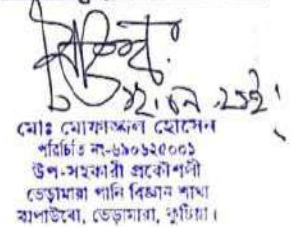 মোঃ মোফাজ্জল হোসেন
পরিচিতি নং-৬৯০১২৫০০১
উপ-সহকারী প্রকৌশলী
ভেড়ামারা পানি বিজ্ঞান শাখা
বাপাউবো, ভেড়ামারা, কুষ্টিয়া।